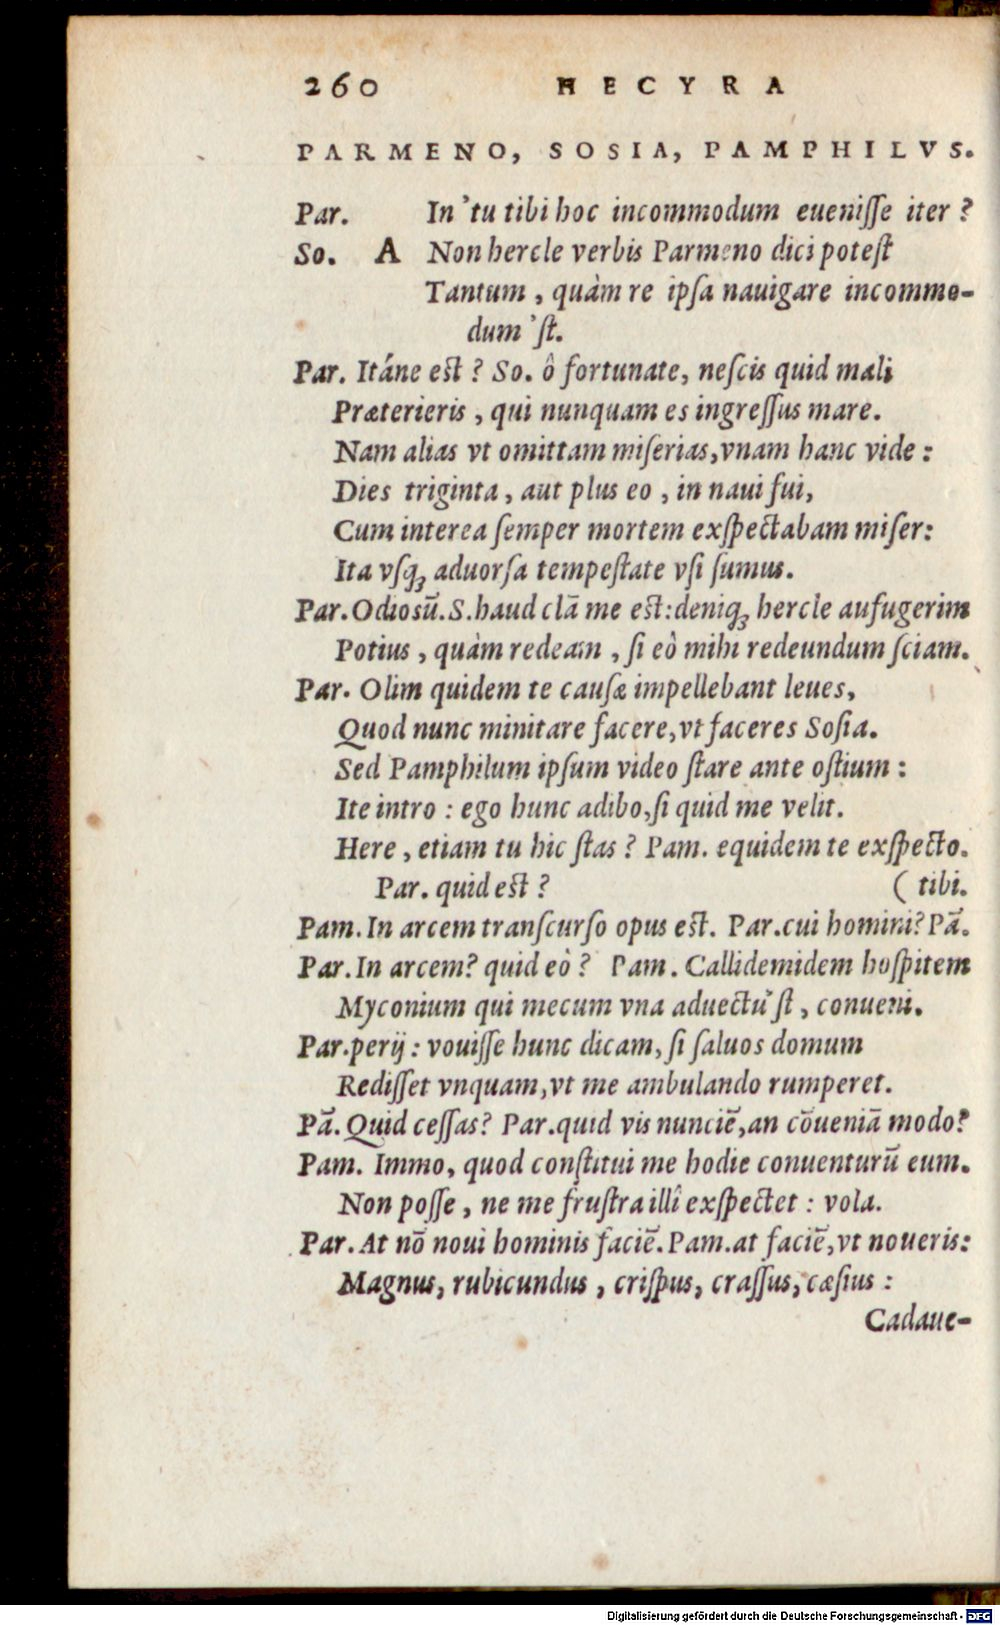 260 HECYRA
PARMENO, SOSIA, PAMPHILVS.
Par. In'tu tibi hoc incommodum eueniſſe iter ?
So. A Non hercle verbis Parmeno dici poteſt
Tantum , quàm re ipſa nauigare incommo-
dum 'ſt.
Par. Itáne eſt ? So. ô fortunate, neſcis quid mali
Præterieris , qui nunquam es ingreſſus mare.
Nam alias vt omittam miſerias,vnam hanc vide :
Dies triginta , aut plus eo , in naui fui,
Cum interea ſemper mortem exſpectabam miſer:
Ita vſq; aduorſa tempeſtate vſi ſumus.
Par. Odioſũ. S. haud clã me eſt: deniq; hercle aufugerim
Potius , quàm redeam , ſi eò mihi redeundum ſciam.
Par. Olim quidem te cauſæ impellebant leues,
Quod nunc minitare facere,vt faceres Soſia.
Sed Pamphilum ipſum video ſtare ante oſtium :
Ite intro : ego hunc adibo,ſi quid me velit.
Here , etiam tu hic ſtas ? Pam. equidem te exſpecto.
Par. quid eſt ? ( tibi.
Pam. In arcem tranſcurſo opus eſt. Par. cui homini? Pã.
Par. In arcem? quid eò ? Pam. Callidemidem hoſpitem
Myconium qui mecum vna aduectu'ſt , conueni.
Par. perij : vouiſſe hunc dicam, ſi ſaluos domum
Rediſſet vnquam,vt me ambulando rumperet.
Pã. Quid ceſſas? Par. quid vis nunciẽ,an cõueniã modo?
Pam. Immo, quod conſtitui me hodie conuenturũ eum.
Non poſſe , ne me fruſtra illî exſpectet : vola.
Par. At nõ noui hominis faciẽ. Pam. at faciẽ,vt noueris:
Magnus, rubicundus , criſpus, craſſus, cæſius :
Cadaue-
Digitalisierung gefördert durch die Deutsche Forschungsgemeinschaft - DFG